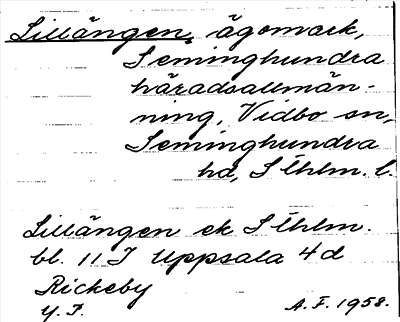 Lillängen, ägomark,
Seminghundra
häradsallmän-
ning, Vidbo sn,
Seminghundra
hd, Sthlm. l.
Lillängen ek Sthlm.
bl. 11 I Uppsala 4d
Rickeby
Y. P.
A. F. 1958.